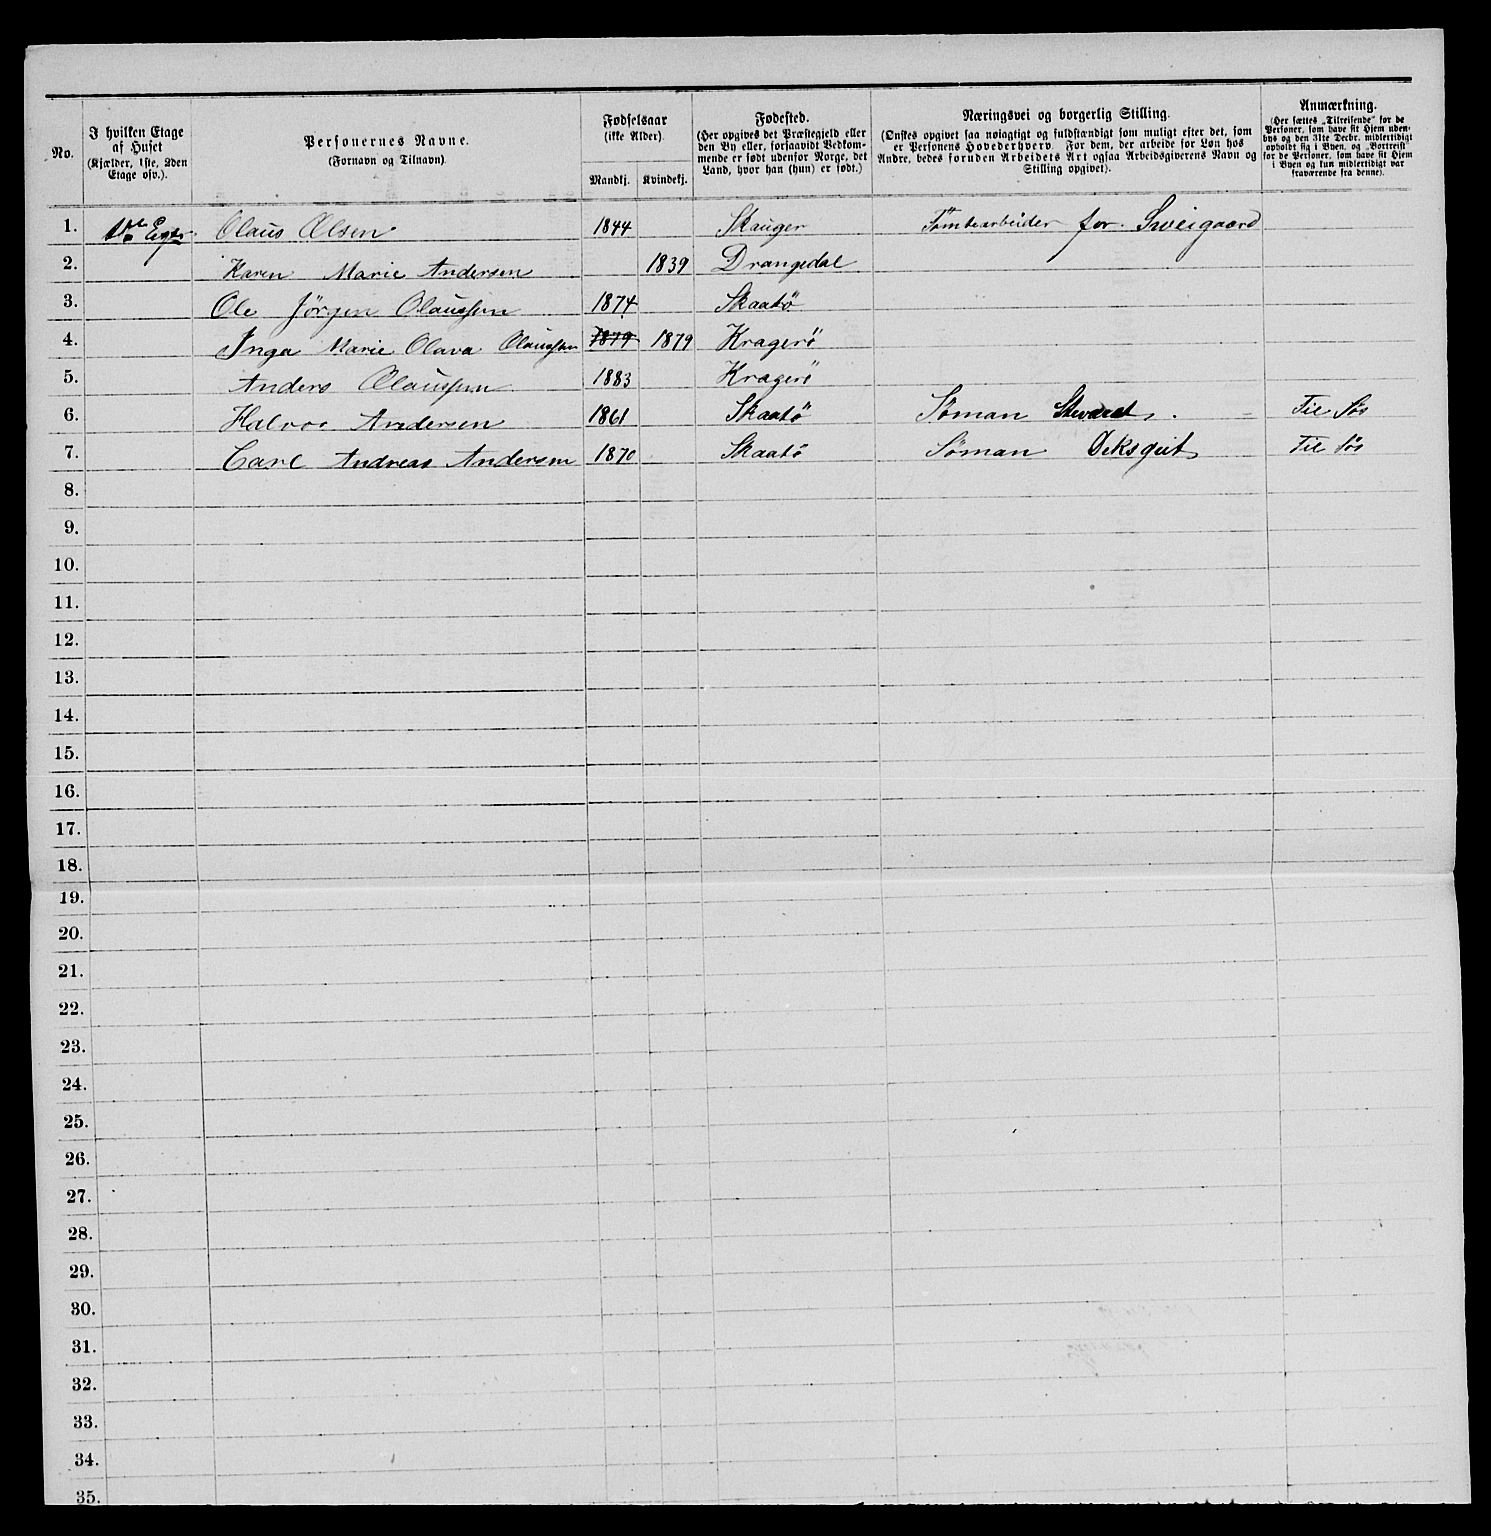 No.
I hvilken Etage af Huset (Kjælder, 1ste, 2den Etage osv.).
Personernes Navne. (Fornavn og Tilnavn).
Fødselsaar (ikke Alder). Mandkj. Kvindekj.
Fødested. (Her opgives det Præstegjeld eller den By eller, forsaavidt Vedkommende er født udenfor Norge, det Land, hvor han (hun) er født.)
Næringsvei og borgerlig Stilling. (Ønskes opgivet saa nøiagtigt og fuldstændigt som muligt efter det, som er Personens Hovederhverv. For dem, der arbeide for Løn hos Andre, bedes foruden Arbeidets Art ogsaa Arbeidsgiverens Navn og Stilling opgivet).
Anmærkning. (Her sættes „Tilreisende" for de Personer, som have sit Hjem udenbys og den 31te Decbr. midlertidigt opholdt sig i Byen, og „Bortreist" for de Personer, som have sit Hjem i Byen og kun midlertidigt var fraværende fra denne).
1. 1ste Olaus Olsen 1844 Skauger Tømtearbeider for Sweigaard
2. Karen Marie Andersen 1839 Drangedal
3. Ole Jörgen Olaussen 1874 Skaatö
4. Inga Marie Olava Olaussen 1879 1879 Kragerö
5. Anders Olaussen 1883 Kragerö
6. Halvor Andersen 1861 Skaatö Söman Stuvard Til Søs
7. Carl Andreas Andersen 1870 Skaatö Söman Deksgut Til Søs
8.
9.
10.
11.
12.
13.
14.
15.
16.
17.
18.
19.
20.
21.
22.
23.
24.
25.
26.
27.
28.
29.
30.
31.
32.
33.
34.
35.